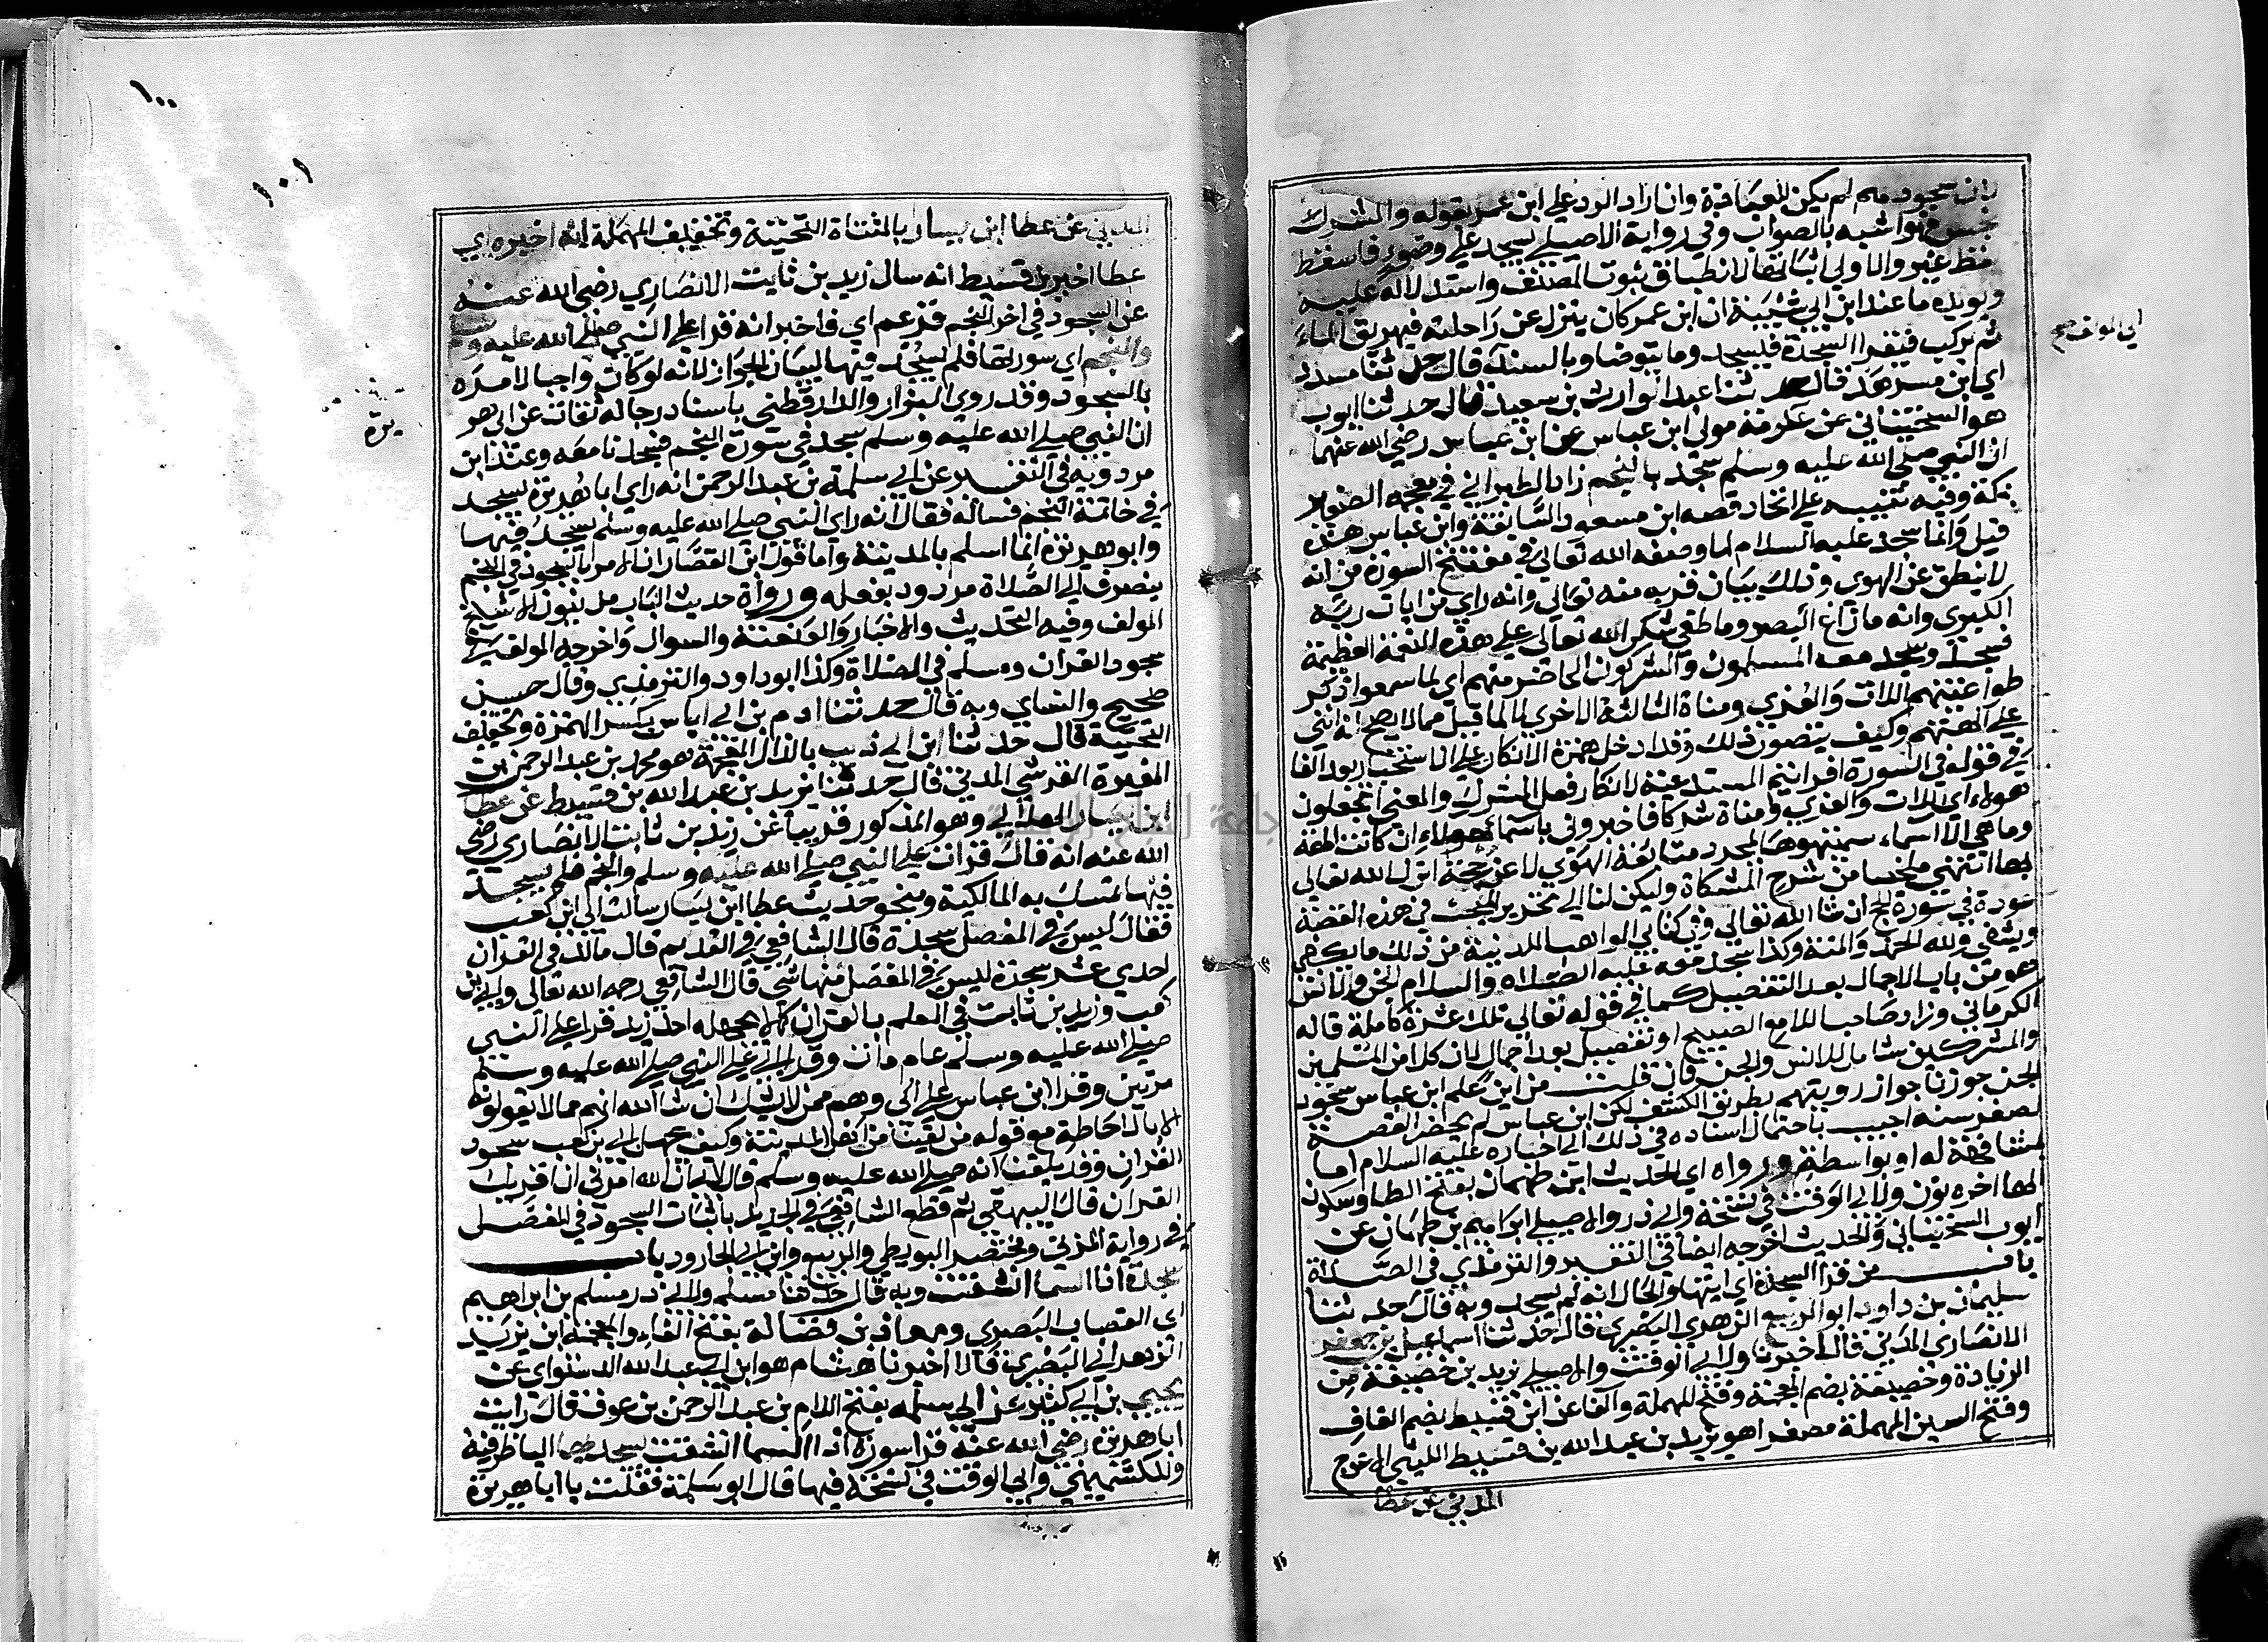 لان سجودهم لم يكن للعبادة وان اراد الرد علي ابن عمر بقوله والمشرك
نجس فهو اشبه بالصواب وفي رواية الاصيلي يسجد علي وضو فاسقط
لفظ غير والاولي اثباتها لانطباق تبويب المصنف واستدلاله عليه
ويويده ما عند ابن ابي شيبة ان ابن عمر كان ينزل عن راحلته فيهريق الماء
ثم يركب فيقرا السجدة فيسجد وما يتوضا وبالسند قال حدثنا مسدد
اي ابن مسرهد قال حدثنا عبد الوارث بن سعيد قال حدثنا ايوب
هو السختياني عن عكرمة مولي ابن عباس عن ابن عباس رضي الله عنهما
ان النبي صلي الله عليه وسلم سجد بالنجم زاد الطبراني في معجمه الصغير
بمكة وفيه تنبيه علي اتحاد قصه ابن مسعود السابقة وابن عباس هذه
قيل وانما سجد عليه السلام لما وصفه الله تعالي في مفتتح السورة من انه
لا ينطق عن الهوي وذلك بيان قربه منه تعالي وانه راي من ايات ربه
الكبري وانه ما زاغ البصر وما طغي شكر الله تعالي علي هذه النعمة العظيمة
فسجد وسجد معه المسلمون والمشركون الحاضر منهم اي لما سمعوا ذكر
طواغيتهم اللات والعزي ومناة الثالثة الاخري لا لما قيل مما لا يصح انه اثني
علي الهتهم وكيف يتصور ذلك وقد ادخل همزة الانكار علي الاستخبار بعد الفا
في قوله في السورة افرايتم المستدعية لانكار فعل المشرك والمعني اتجعلون
هولاء اي اللات والعزي ومناة شركا فاخبروني باسماء هولاء ان كانت الهة
وما هي الا اسماء سميتموها لمجرد متابعة الهوي لا عن حجة انزل الله تعالي
بها انتهي ملخصا من شرح المشكاة وليكن لنا الي تحرير المبحث في هذه القصة
عودة في سورة الحج ان شا الله تعالي وفي كتابي المواهب اللدنية من ذلك ما يكفي
ويشفي ولله الحمد والمنة وكذا سجد معه عليه الصلاه والسلام الجن والانس
هو من باب الاجمال بعد التفصيل كما في قوله تعالي تلك عشرة كاملة قاله
الكرماني وزاد صاحب اللامع الصبيح او تفصيل بعد اجمال لان كلا من المسلمين
والمشركين شامل للانس والجن فان قلت من اين علم ابن عباس سجود
الجن جوزنا جواز رويتهم بطريق الكشف لكن ابن عباس لم يحضر القصة
لصغر سنه اجيب باحتمال اسناده في ذلك الي اخباره عليه السلام اما
مشافهة له او بواسطة ورواه اي الحديث ابن طهمان بفتح الطا وسكون
الها اخره نون ولابي الوقت في نسخة وابي ذر والاصيلي ابراهيم بن طهمان عن
ايوب السختياني والحديث اخرجه ايضا في التفسير والترمذي في الصلاة
باب من قرا السجدة اي ايتها والحال انه لم يسجد وبه قال حدثنا
سليمان بن داود ابو الربيع الزهري البصري قال حدثنا اسماعيل بن جعفر
الانصاري المدني قال اخبرنا ولابي الوقت والاصيلي يزيد بن خصيفة من
الزيادة وخصيفة بضم المعجمة وفتح المهملة والفا عن ابن قسيط بضم القاف
وفتح السين المهملة مصغرا هو يزيد بن عبد الله بن قسيط الليثي الاعرج
المدني عن عطا
ابي الوقت صح
١٠٠
١٠١
المدني عن عطا ابن يسار بالمثناة التحتية وتخفيف المهملة انه اخبره اي
عطا اخبر بن قسيط انه سال زيد بن ثابت الانصاري رضي الله عنه
عن السجود في اخر النجم فزعم اي فاخبر انه قرا علي النبي صلي الله عليه وسلم
والنجم اي سورتها فلم يسجد فيها لبيان الجواز لانه لو كان واجبا لامره
بالسجود وقد روي البزار والدارقطني باسناد رجاله ثقات عن ابي هر
يرة
ان النبي صلي الله عليه وسلم سجد في سورة النجم فسجدنا معه وعند ابن
مردويه في التفسير عن ابي سلمة بن عبد الرحمن انه راي ابا هريرة يسجد
في خاتمة النجم فساله فقال انه راي النبي صلي الله عليه وسلم يسجد فيها
وابو هريرة انما اسلم بالمدينة واما قول ابن القصار ان الامر بالسجود في النجم
ينصرف الي الصلاة مردود بفعله ورواة حديث الباب مدنيون الا شيخ
المولف وفيه التحديث والاخبار والعنعنة والسوال واخرجه المولف في
سجود القران ومسلم في الصلاة وكذا ابو داود والترمذي وقال حسن
صحيح والنساي وبه قال حدثنا ادم بن ابي اياس بكسر الهمزة وتخفيف
التحتية قال حدثنا ابن ابي ذيب بالذال المعجمة هو محمد بن عبد الرحمن بن
المغيرة القرشي المدني قال حدثنا يزيد بن عبد الله بن قسيط عن عطا
ابن يسار الهلالي وهو المذكور قريبا عن زيد بن ثابت الانصاري رضي
الله عنه انه قال قرات علي النبي صلي الله عليه وسلم والنجم فلم يسجد
فيها تمسك به المالكية وبنحو حديث عطا ابن يسار سالت ابي ابن كعب
فقال ليس في المفصل سجدة قال الشافعي في القديم قال مالك في القران
احدي عشر سجدة ليس في المفصل منها شي قال الشافعي رحمه الله تعالي وابي بن
كعب وزيد بن ثابت في العلم بالقران كما لا يجهله احد زيد قرا علي النبي
صلي الله عليه وسلم عام مات وقرا ابي علي النبي صلي الله عليه وسلم
مرتين وقرا ابن عباس علي ابي وهم ممن لا يشك ان شا الله انهم مما لا يقولونه
الا بالاحاطة مع قوله من لقينا من اهل المدينة وكيف يجهل ابي بن كعب سجود
القران وقد بلغنا انه صلي الله عليه وسلم قال لابي ان الله امرني ان اقريك
القران قال البيهقي ثم قطع الشافعي في الجديد باثبات السجود في المفصل
في رواية المزني ومختصر البويطي والربيع وابن ابي الجارود باب
سجدة اذا السما انشقت وبه قال حدثنا مسلم ولابي ذر مسلم بن ابراهيم
اي القصاب البصري ومعاذ بن فضالة بفتح الفاء والمعجمة ابن يزيد
الزهراني البصري قالا اخبرنا هشام هو ابن ابي عبد الله الدستواي عن
يحيي بن ابي كثير عن ابي سلمه بفتح اللام بن عبد الرحمن بن عوف قال رايت
ابا هريرة رضي الله عنه قرا سورة اذا السما انشقت يسجد بها الباظرفية
وللكشميهني وابي الوقت في نسخة فيها قال ابو سلمة فقلت يا ابا هريرة